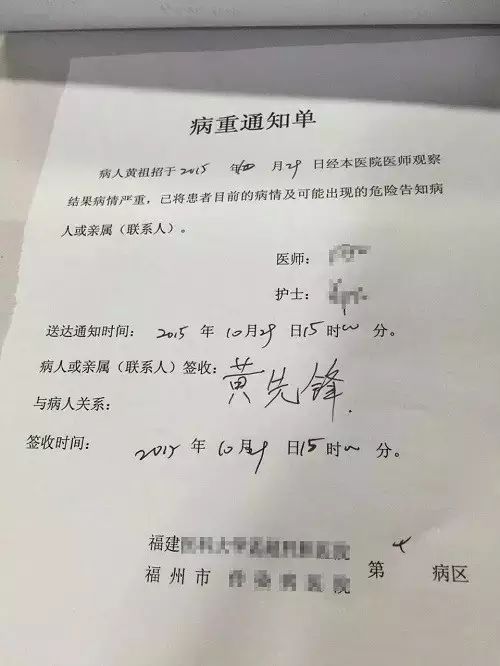 病重通知单
病人黄祖招于2015年10月29日经本医院医师观察
结果病情严重，已将患者目前的病情及可能出现的危险告知病
人或亲属（联系人）。
医师：
护士：
送达通知时间：2015年10月29日15时00分。
病人或亲属（联系人）签收：黄先锋
与病人关系：
签收时间：2015年10月29日15时00分。
福建
福州市 第 病区